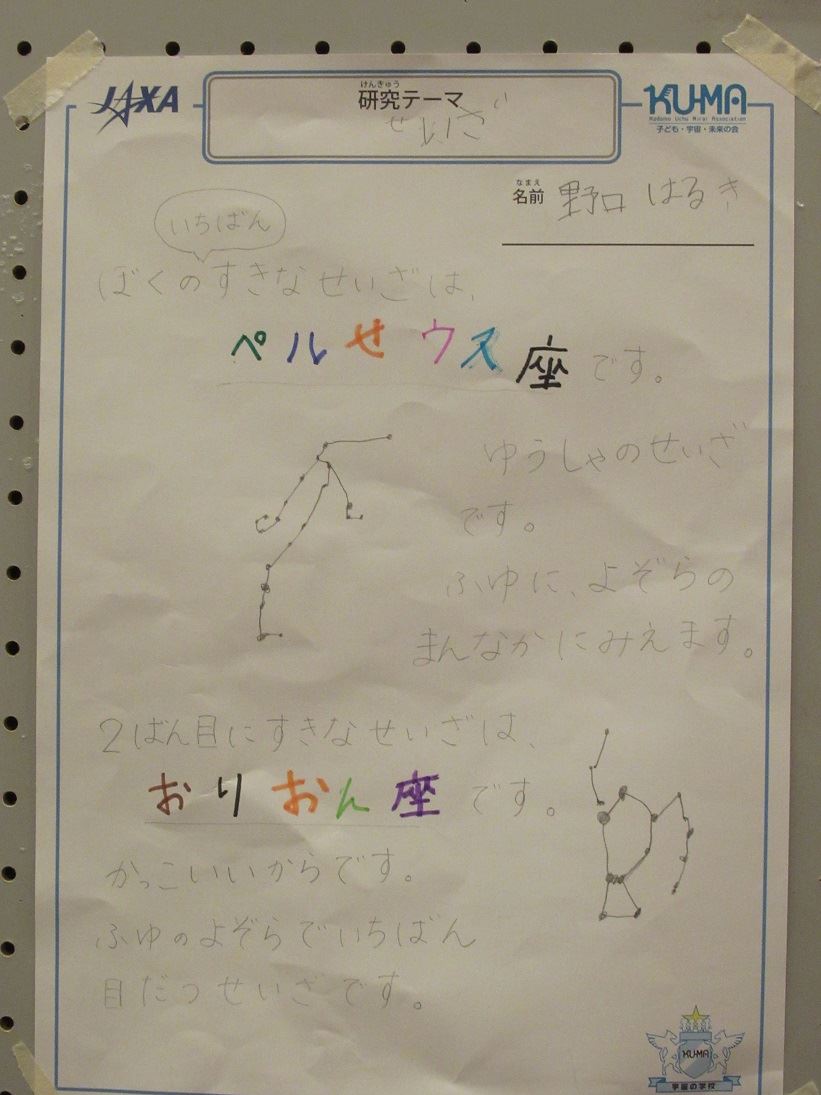 JAXA
けんきゅう
研究テーマ
せいざ
KU-MA
Kodomo Uchu Mirai Association
子ども・宇宙・未来の会
なまえ
名前 野口 はるき
いちばん
ぼくのすきなせいざは、
ペルセウス座です。
ゆうしゃのせいざ
です。
ふゆに、よぞらの
まんなかにみえます。
2ばん目にすきなせいざは、
おりおん座です。
かっこいいからです。
ふゆのよぞらでいちばん
目だつせいざです。
KU-MA
宇宙の学校